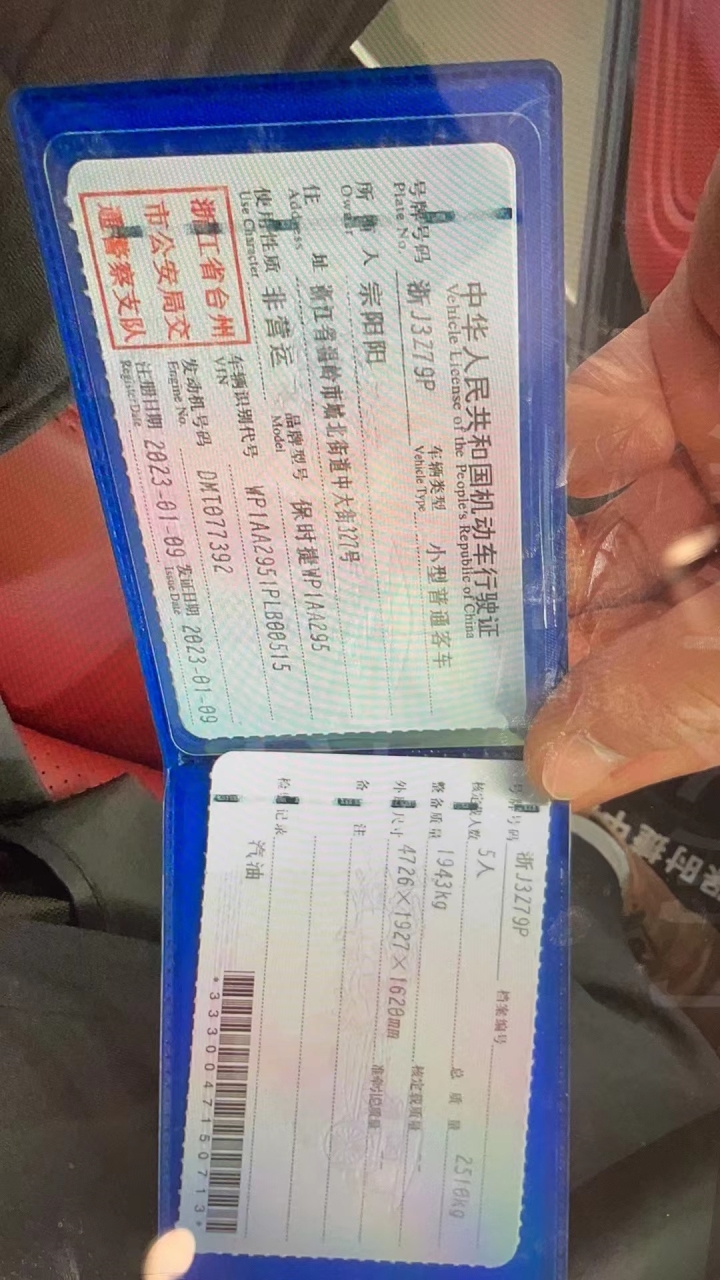 中华人民共和国机动车行驶证
Vehicle License of the People's Republic of China
号牌号码 浙J3Z79P 车辆类型 小型普通客车
Plate No. Vehicle Type
所有人 宗阳阳
Owner
住址 浙江省温岭市城北街道中大街327号
Address
使用性质 非营运 品牌型号 保时捷WP1AA295
Use Character Model
浙江省台州
市公安局交
通警察支队
车辆识别代号 WP1AA2951PLB00515
VIN
发动机号码 DMT077392
Engine No.
注册日期 2023-01-09 发证日期 2023-01-09
Register Date Issue Date
号牌号码 浙J3Z79P 档案编号
核定载人数 5人 总质量 2510kg
整备质量 1943kg 核定载质量 --
外廓尺寸 4726×1927×1620mm 准牵引总质量 --
备注
检验记录
汽油
*3330047150713*
保时捷中